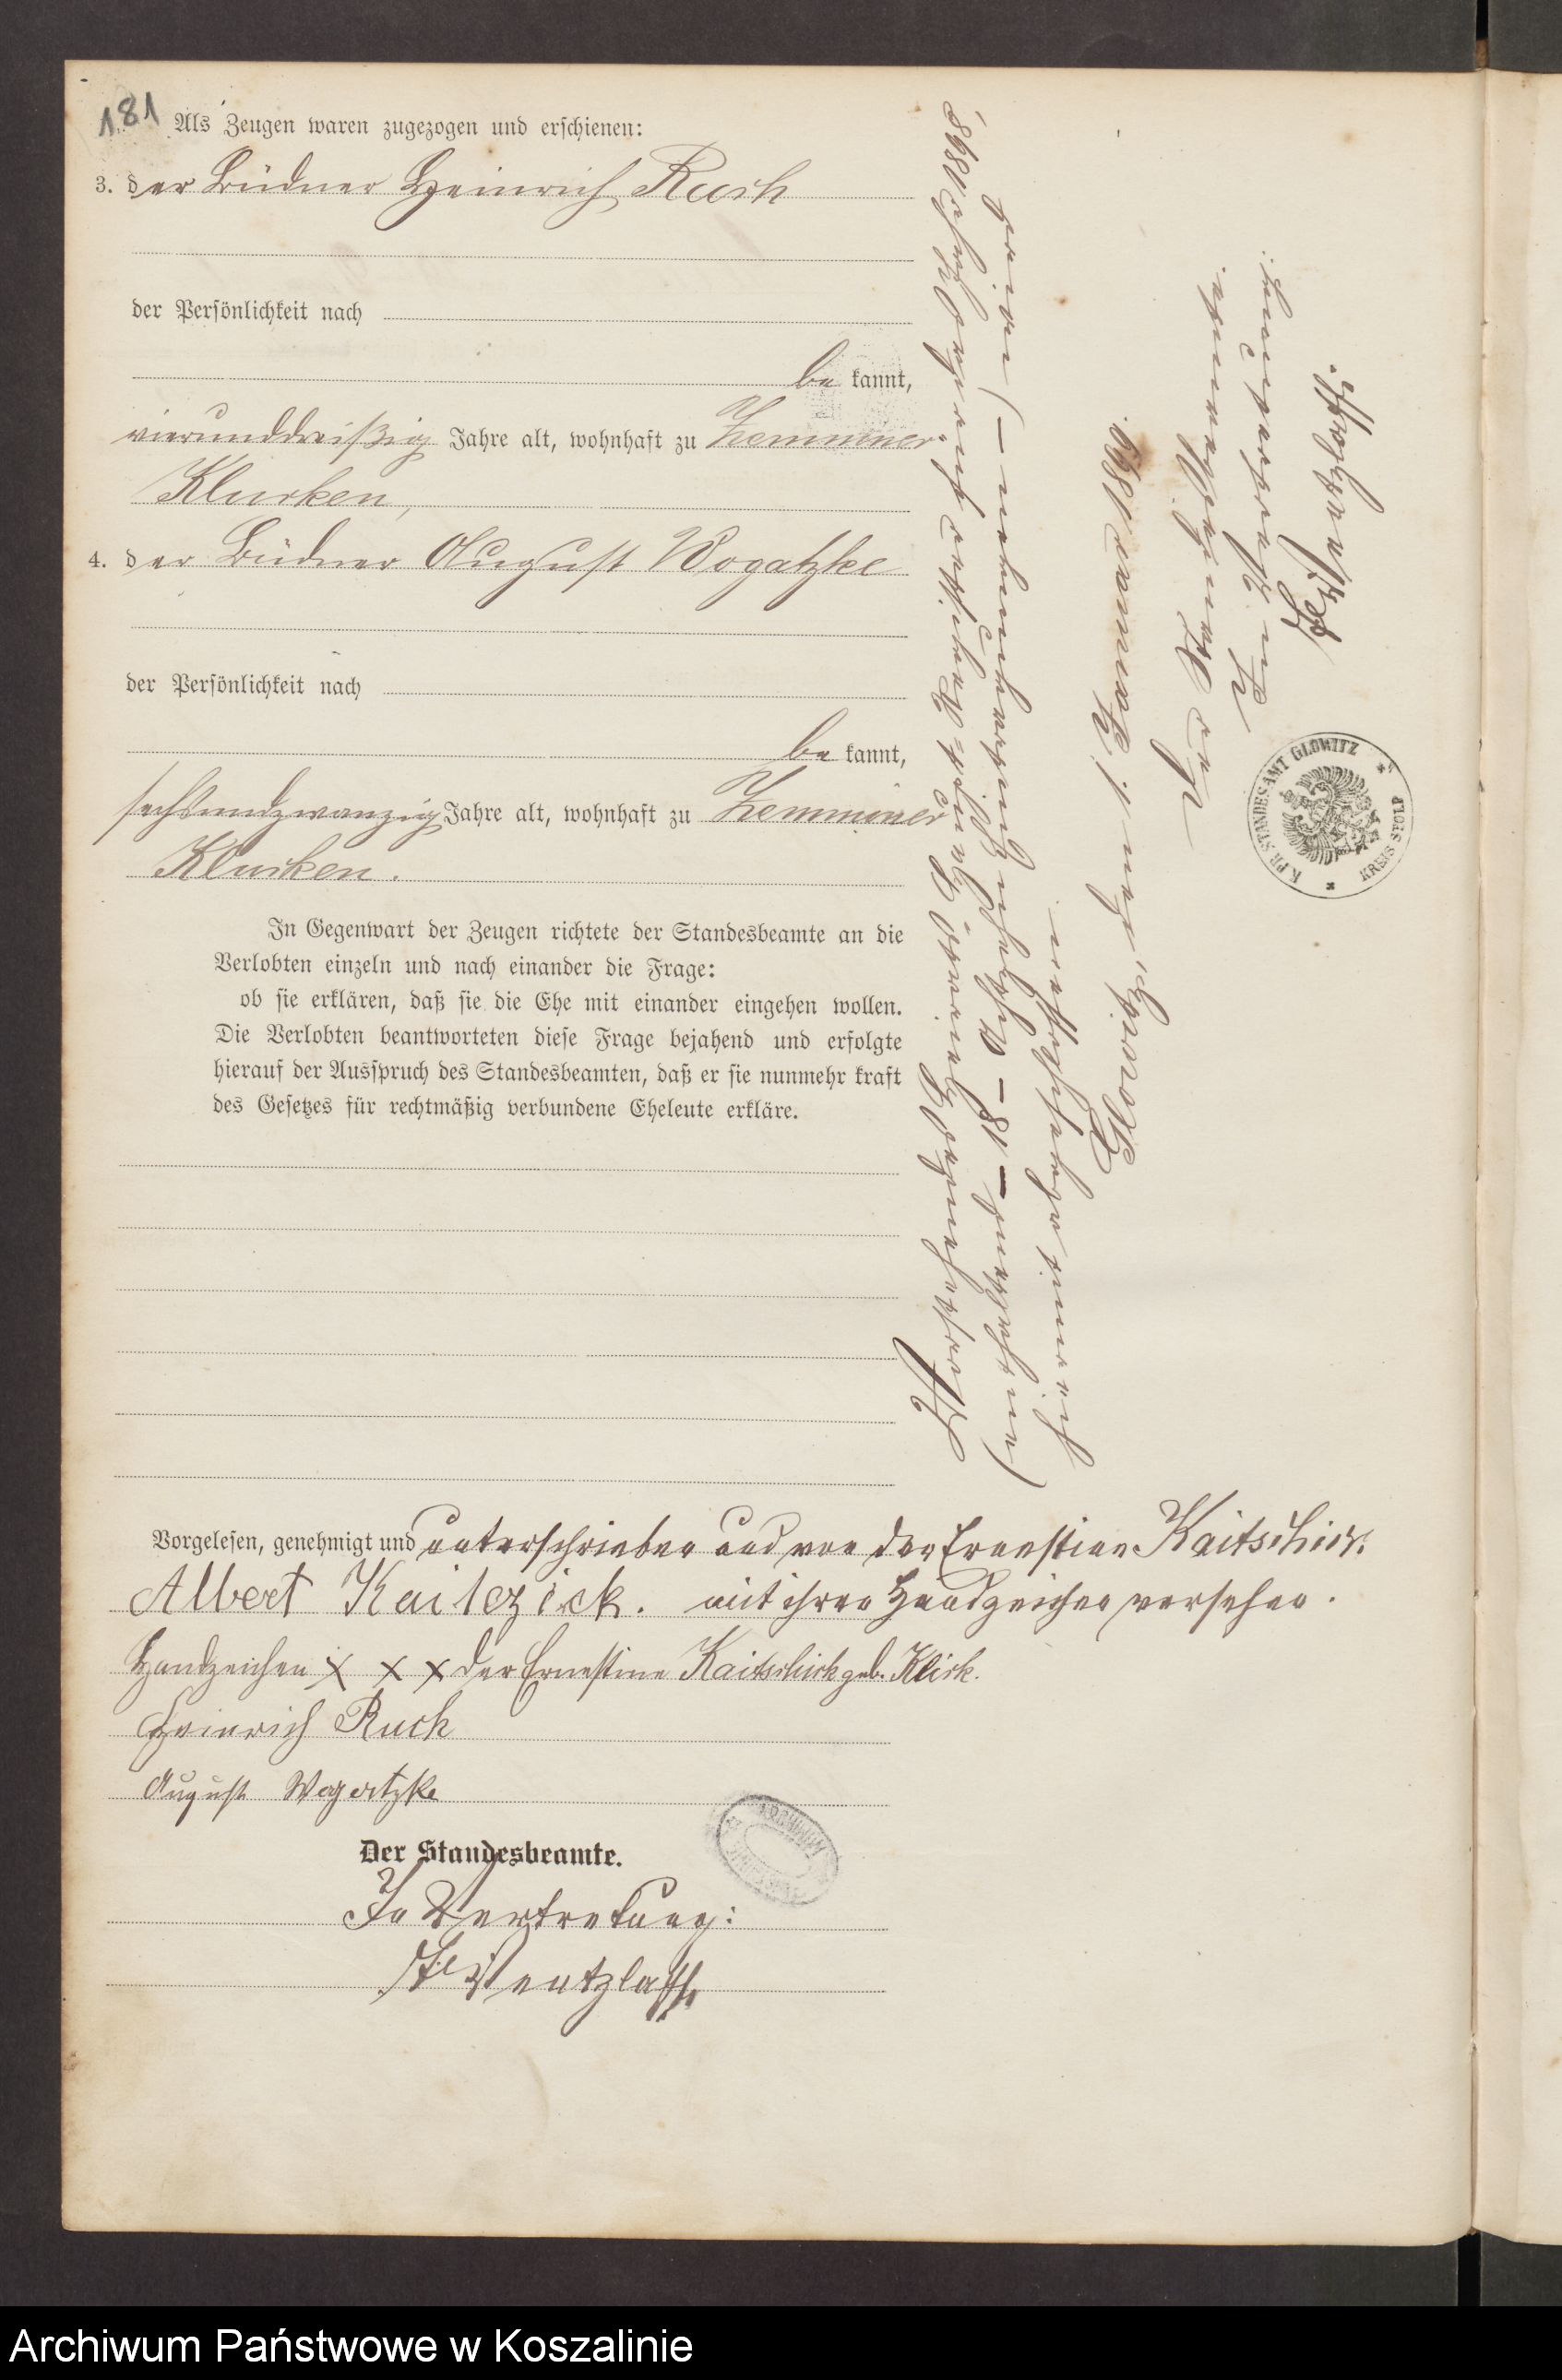 181
Als Zeugen waren zugezogen und erschienen:
3. der Büdner Heinrich Ruch
der Persönlichkeit nach
be kannt,
vierunddreißig Jahre alt, wohnhaft zu Zemminer
Klucken,
4. der Büdner August Wogatzke
der Persönlichkeit nach
be kannt,
sechsundzwanzig Jahre alt, wohnhaft zu Zemminer
Klucken.
In Gegenwart der Zeugen richtete der Standesbeamte an die
Verlobten einzeln und nach einander die Frage:
ob sie erklären, daß sie die Ehe mit einander eingehen wollen.
Die Verlobten beantworteten diese Frage bejahend und erfolgte
hierauf der Ausspruch des Standesbeamten, daß er sie nunmehr kraft
des Gesetzes für rechtmäßig verbundene Eheleute erkläre.
Vorgelesen, genehmigt und unterschrieben und von der Ernestine Kaitschick
Albert Kaitczick. mit ihren Handzeichen versehen.
Handzeichen x x x der Ernestine Kaitschick geb. Klick.
Heinrich Ruch
August Wogatzke
Der Standesbeamte.
In Vertretung:
Wentzlaff.
Vorstehendes Heiraths Haupt-Register für das Jahr 1898
achtzehn Eintragungen
abgeschlossen.
Glowitz, den 1. Januar 1899.
Der Standesbeamte.
In Vertretung:
Wentzlaff.
K. PR. STANDESAMT GLOWITZ
KREIS STOLP
ARCHIWUM
Archiwum Państwowe w Koszalinie